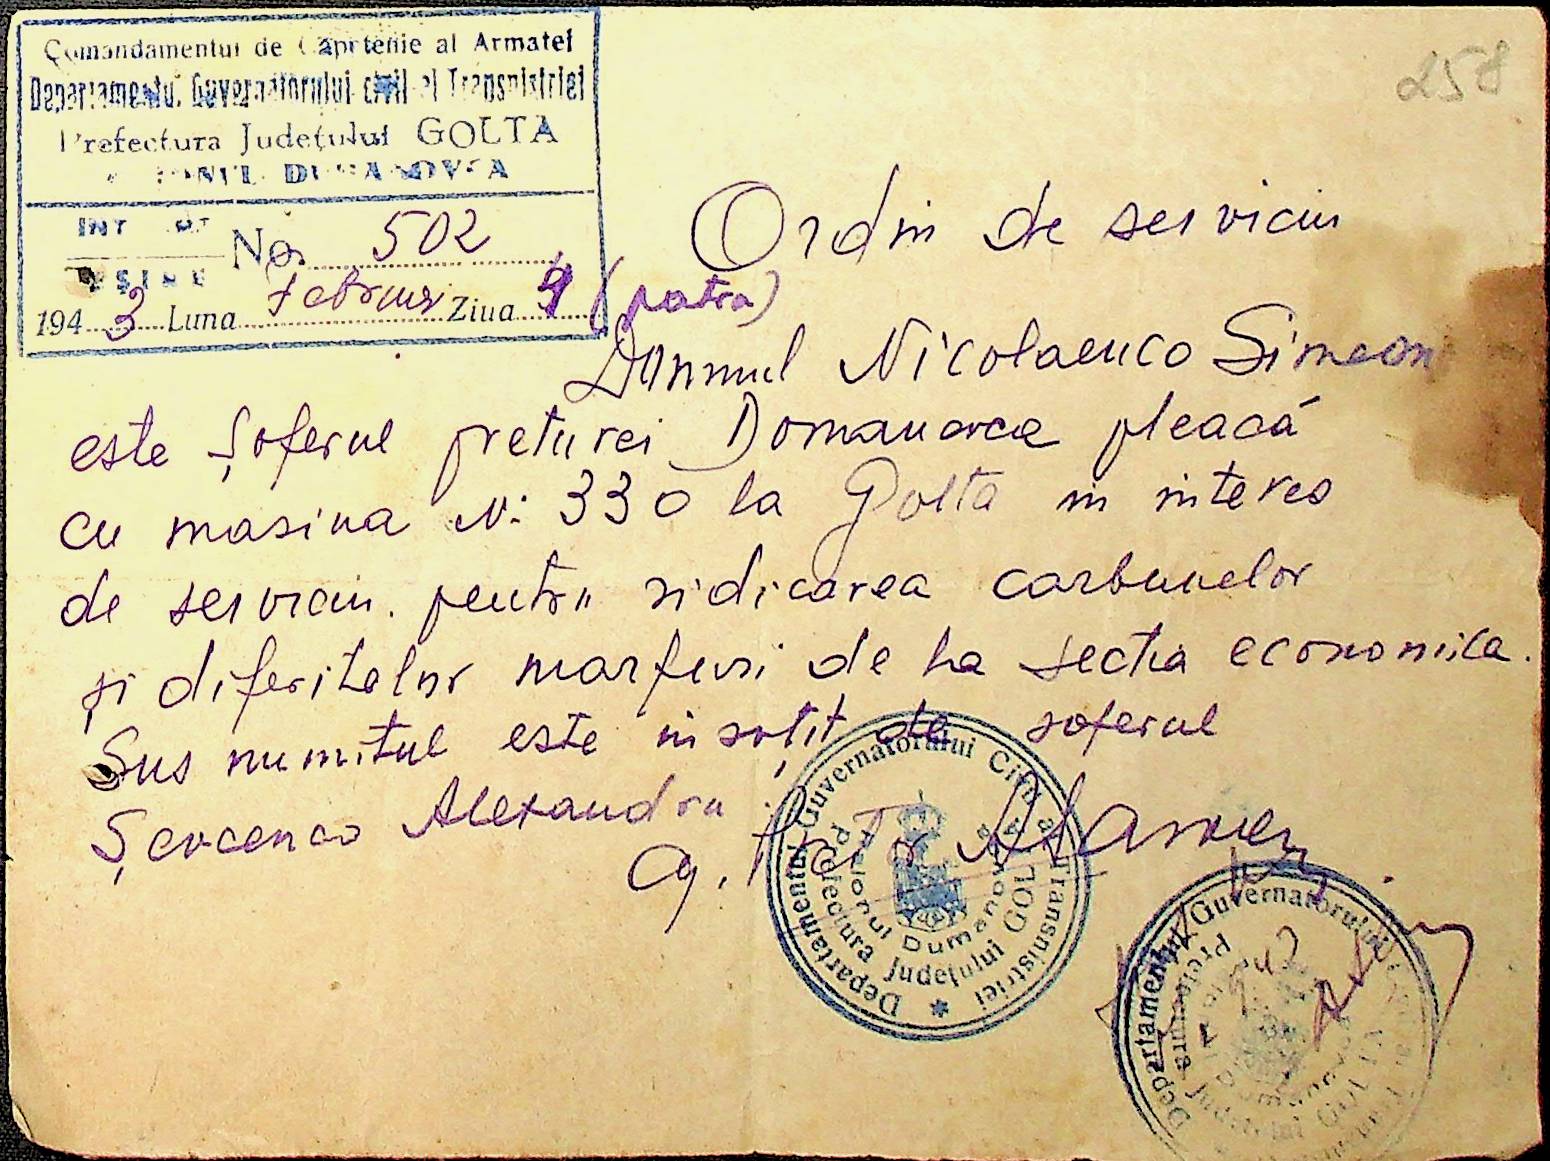 258
Comandamentul de Căpitenie al Armatei
Departamentul Guvernatorului civil al Transnistriei
Prefectura Județului GOLTA
DUMANOVCA
INT
No. 502
IEȘIRE
1943 Luna Februar Ziua 4 (patra)
Ordin de serviciu
Domnul Nicolaenco Simeon
este Șoferul preturei Domanovca pleacă
cu masina N: 330 la Golta in interes
de serviciu. pentru ridicarea carbunelor
și diferitelor marfuri de la sectia economica.
Sus numitul este insoțit de soferul
Șevcenco Alexandru
Departamentul Guvernatorului Civil al Transnistriei
Prefectura Județului GOLTA
Raionul Dumanovca
Departamentul Guvernatorului
Prefectura Județului GOLTA
Dumanovca